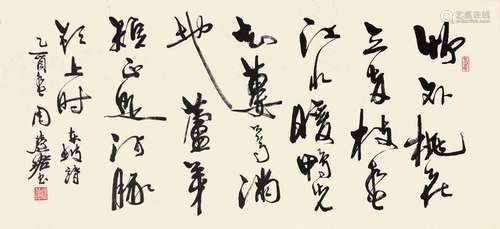 竹外桃花
三两枝春
江水暖鴨先
知蔞蒿满
地蘆芽
短正是河豚
欲上时 东坡诗
乙酉春周慧珺书